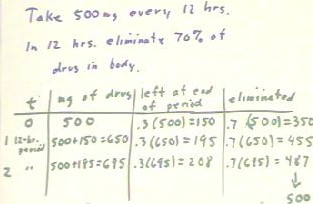 Take 500 mg every 12 hrs.
In 12 hrs. eliminate 70% of
drug in body.
t | mg of drug | left at end of period | eliminated
0 | 500 | .3(500)=150 | .7(500)=350
1 12-hr. period | 500+150=650 | .3(650)=195 | .7(650)=455
2 " | 500+195=695 | .3(695)=208 | .7(695)=487
↓
500